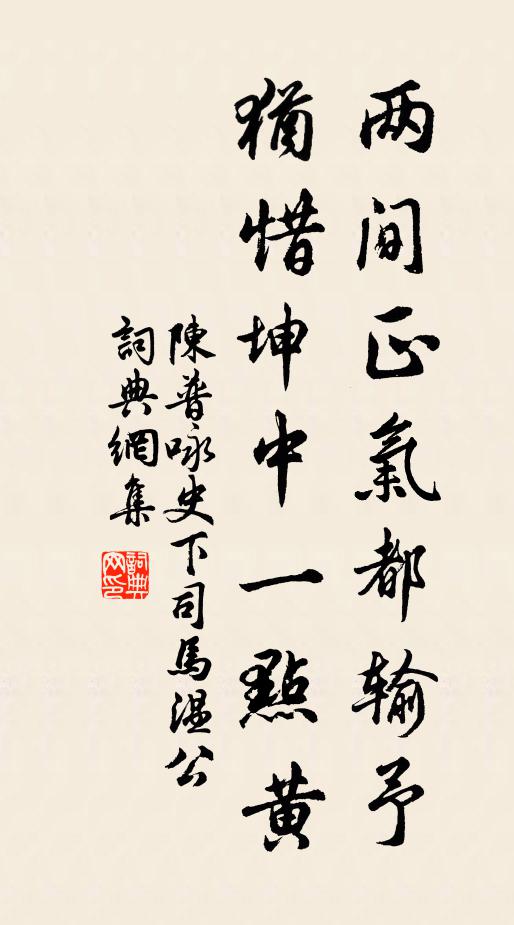 两间正氣都输予
猶惜坤中一點黄
陳普咏史下司馬温公
詞典網集
詞典网印